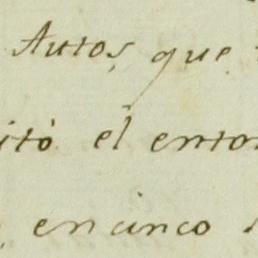 Autos, que
itó el enton
en cinco